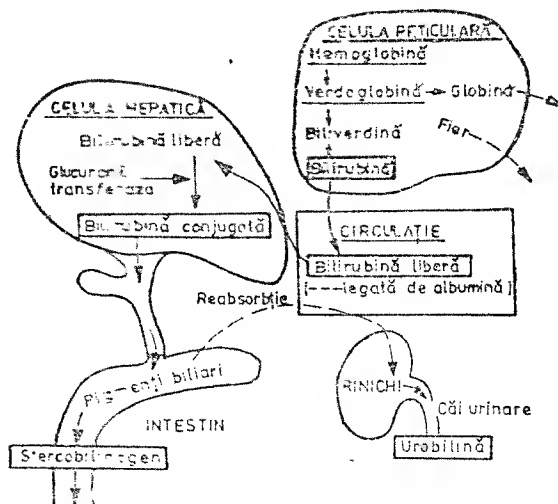 CELULA RETICULARĂ
Hemoglobină
Verdoglobină
Globină
Biliverdină
Fier
Bilirubină
CELULA HEPATICĂ
Bilirubină liberă
Glucuronil
transferaza
Bilirubină conjugată
CIRCULAȚIE
Bilirubină liberă
(---legată de albumină)
Reabsorbție
Pigmenți biliari
INTESTIN
Stercobilinogen
RINICHI
Căi urinare
Urobilină